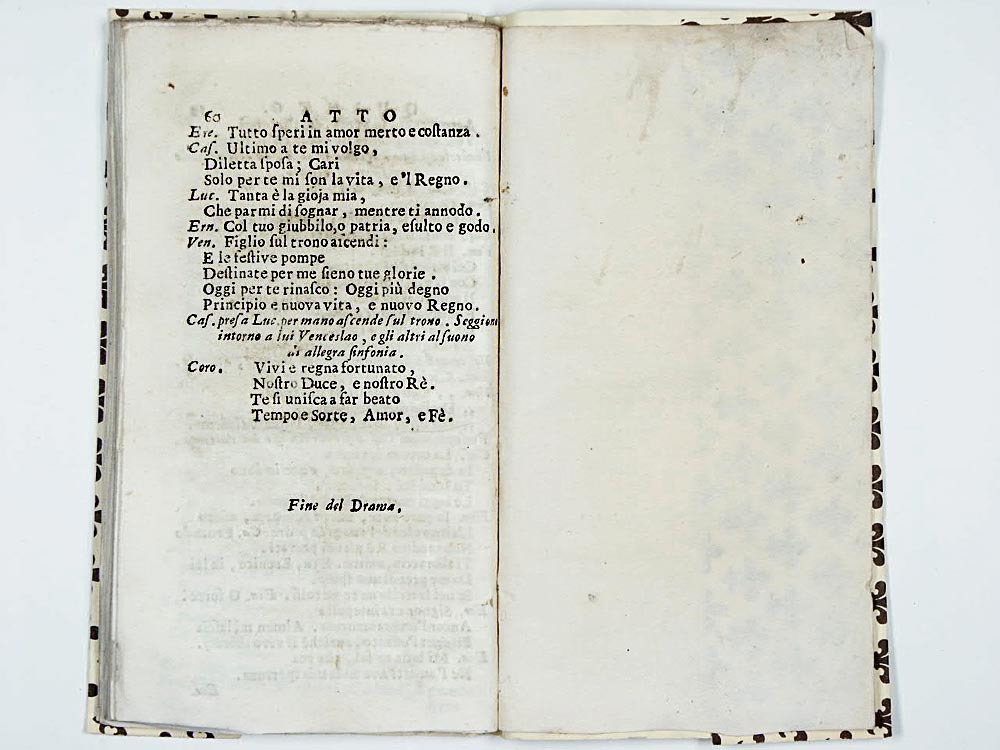 60 ATTO
Ere. Tutto ſperi in amor merto e coſtanza.
Caſ. Ultimo a te mi volgo,
Diletta ſpoſa; Cari
Solo per te mi ſon la vita, e'l Regno.
Luc. Tanta è la gioja mia,
Che parmi di ſognar, mentre ti annodo.
Ern. Col tuo giubbilo, o patria, eſulto e godo.
Ven. Figlio ſul trono aſcendi:
E le feſtive pompe
Deſtinate per me ſieno tue glorie.
Oggi per te rinaſco: Oggi più degno
Principio e nuova vita, e nuovo Regno.
Caſ. preſa Luc. per mano aſcende ſul trono. Seggion
intorno a lui Venceslao, e gli altri al ſuono
di allegra ſinfonia.
Coro. Vivi e regna fortunato,
Noſtro Duce, e noſtro Rè.
Te ſi uniſca a far beato
Tempo e Sorte, Amor, e Fè.
Fine del Drama.